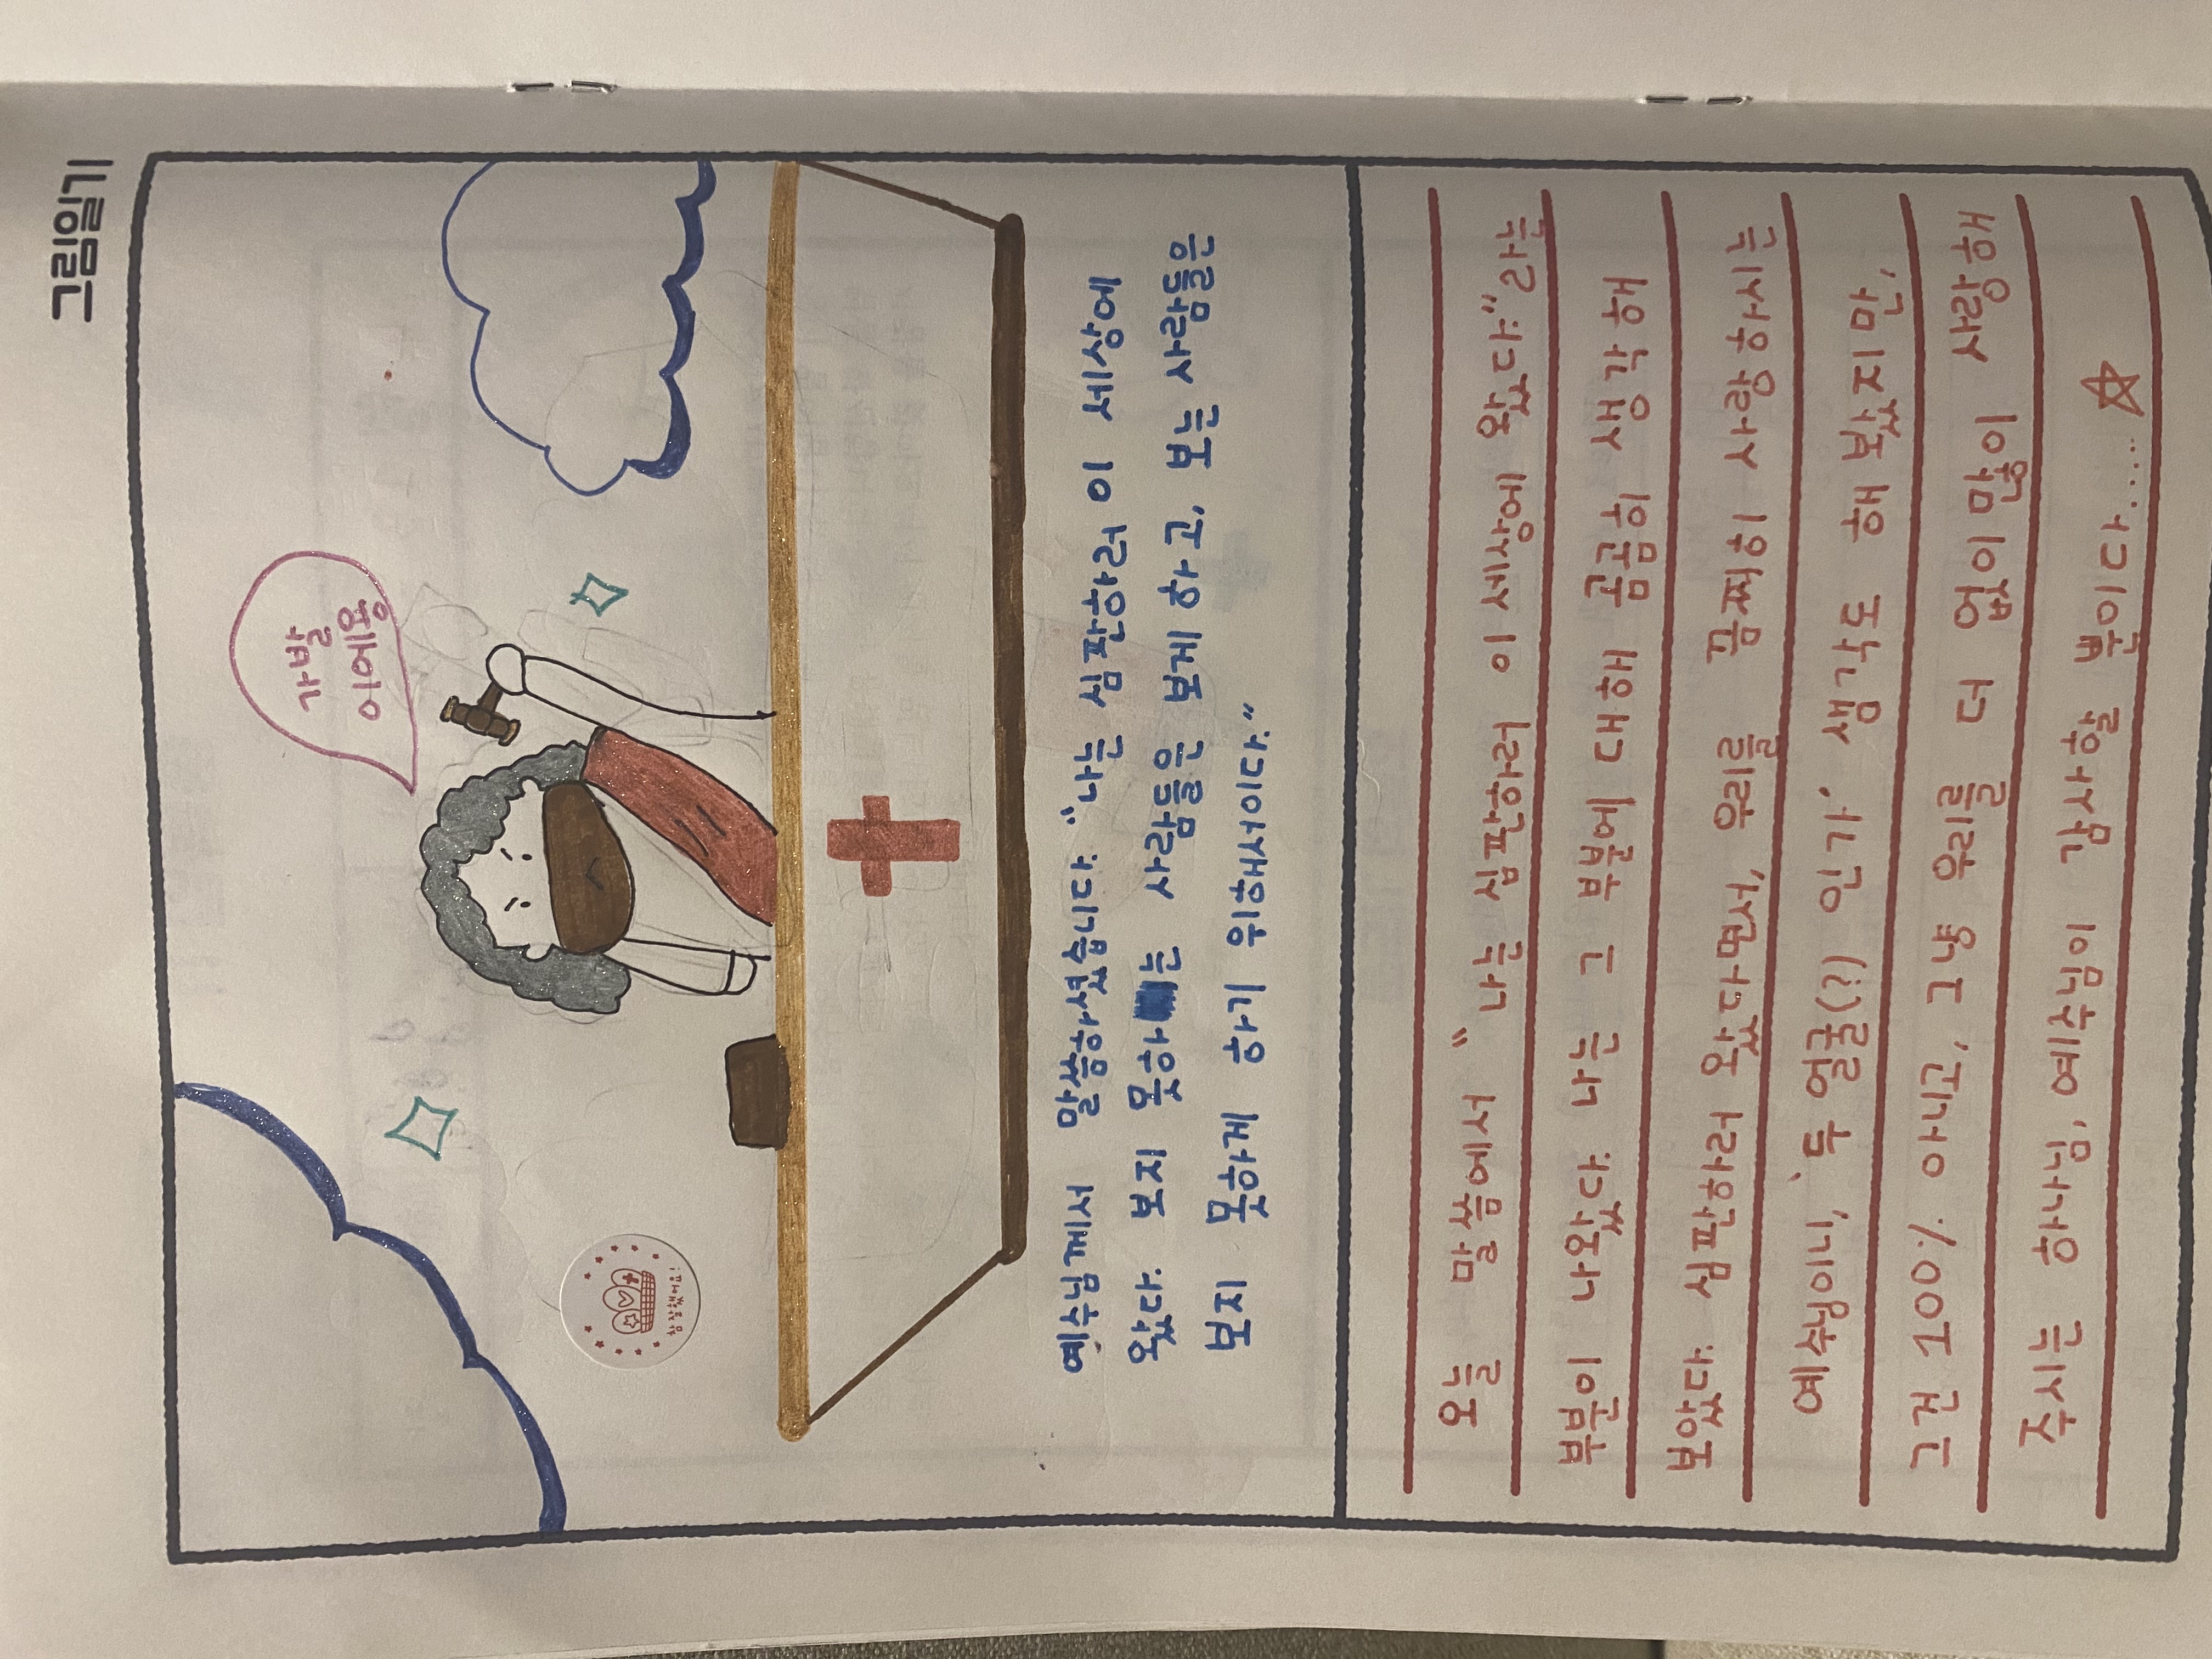 그림일기
이에용
예수님께서 말씀하셨습니다. "나는 심판하러 이 세상에
왔다. 보지 못하는 사람들은 보게 하고, 보는 사람들은
보지 못하게 하기 위해서이다."
오늘 말씀에서 "나는 심판하러 이 세상에 왔다."라는
부분이 나왔다. 나는 그 부분에 대해 의문을 생각해
보았다. 심판하러 왔다면서, 우리를 위해 사랑하시는
예수님이니, 두 얼굴(?)인가. 생각도 해 보았지만,
그건 100% 아니고, 그냥 우리를 더 믿음이 있게
주시는 하나님, 예수님이 감사할 뿐이다.
참 잘했어요!